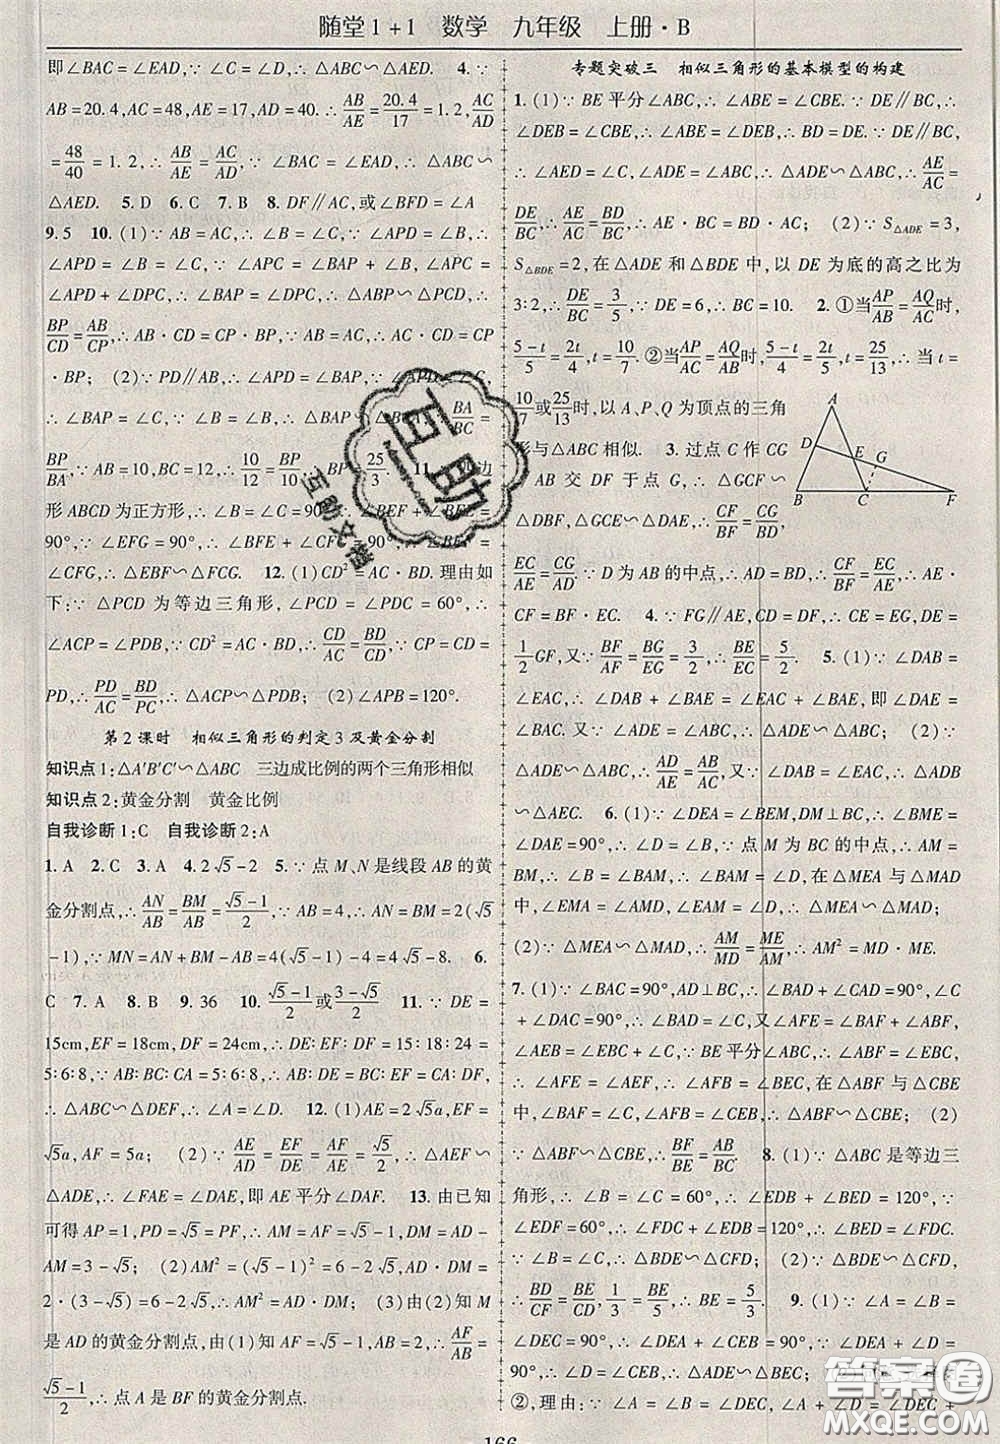 随堂1+1 数学 九年级 上册·B
即∠BAC=∠EAD,∵∠C=∠D,∴△ABC∽△AED. 4.∵
AB=20.4,AC=48,AE=17,AD=40,∴AB/AE=20.4/17=1.2,AC/AD
=48/40=1.2,∴AB/AE=AC/AD,∵∠BAC=∠EAD,∴△ABC∽
△AED. 5.D 6.C 7.B 8.DF∥AC,或∠BFD=∠A
9.5 10.(1)∵AB=AC,∴∠B=∠C,∵∠APD=∠C,∴
∠APD=∠B=∠C,∵∠APC=∠BAP+∠B,∠APC=
∠APD+∠DPC,∴∠BAP=∠DPC,∴△ABP∽△PCD,∴
BP/CD=AB/CP,∴AB·CD=CP·BP,∵AB=AC,∴AC·CD=CP
·BP; (2)∵PD∥AB,∴∠APD=∠BAP,∵∠APD=∠C,
∴∠BAP=∠C,∵∠B=∠B,∴△BAP∽△BCA,∴BA/BC=
BP/BA,∵AB=10,BC=12,∴10/12=BP/10,∴BP=25/3. 11.
形ABCD为正方形,∴∠B=∠C=90°,
90°,∵∠EFG=90°,∴∠BFE+∠CFG=90°,∴∠BEF=
∠CFG,∴△EBF∽△FCG. 12.(1)CD²=AC·BD.理由如
下:∵△PCD为等边三角形,∠PCD=∠PDC=60°,∴
∠ACP=∠PDB,∵CD²=AC·BD,∴CD/AC=BD/CD,∵CP=CD=
PD,∴PD/AC=BD/PC,∴△ACP∽△PDB; (2)∠APB=120°.
第2课时 相似三角形的判定3及黄金分割
知识点1:△A′B′C′∽△ABC 三边成比例的两个三角形相似
知识点2:黄金分割 黄金比例
自我诊断1:C 自我诊断2:A
1.A 2.C 3.A 4.2√5-2 5.∵点M、N是线段AB的黄
金分割点,∴AN/AB=BM/AB=(√5-1)/2,∵AB=4,∴AN=BM=2(√5
-1),∵MN=AN+BM-AB=4(√5-1)-4=4√5-8 6.
C 7.A 8.B 9.36 10.(√5-1)/2或(3-√5)/2 11.∵DE=
15cm,EF=18cm,DF=24cm,∴DE:EF:DF=15:18:24=
5:6:8,∵AB:BC:CA=5:6:8,∴AB:BC:CA=DE:EF:DF,
∴△ABC∽△DEF,∴∠A=∠D. 12.(1)AE=2√5a,EF=
√5a,AF=5a; (2)∵AE/AD=EF/DE=AF/AE=√5/2,∴△AEF∽
△ADE,∴∠FAE=∠DAE,即AE平分∠DAF. 13.由已知
可得AP=1,PD=√5=PF,∴AM=AF=√5-1,DM=AD-
AM=3-√5; (2)AM²=(√5-1)²=6-2√5,AD·DM=
2·(3-√5)=6-2√5,∴AM²=AD·DM; (3)由(2)知M
是AD的黄金分割点,由(1)知AF=√5-1,BF=2,∴AF/BF=
(√5-1)/2,∴点A是BF的黄金分割点.
专题突破三 相似三角形的基本模型的构建
1.(1)∵BE平分∠ABC,∴∠ABE=∠CBE.∵DE∥BC,∴
∠DEB=∠CBE,∴∠ABE=∠DEB,∴BD=DE.∵DE∥BC,
∴∠ADE=∠ABC,∠AED=∠C,∴△ADE∽△ABC,∴AE/AC=
DE/BC,∴AE/AC=BD/BC,∴AE·BC=BD·AC; (2)∵S△ADE=3,
S△BDE=2,在△ADE和△BDE中,以DE为底的高之比为
3:2,∴DE/BC=3/5,∵DE=6,∴BC=10. 2.①当AP/AB=AQ/AC时,
(5-t)/5=2t/4,t=10/7. ②当AP/AC=AQ/AB时,(5-t)/4=2t/5,t=25/13,∴当t=
10/7或25/13时,以A、P、Q为顶点的三角
形与△ABC相似. 3.过点C作CG
∥AB交DF于点G,∴△GCF∽
△DBF,△GCE∽△DAE,∴CF/BF=CG/BD,
EC/EA=CG/AD.∵D为AB的中点,∴CF/BF=EC/AE,∴AE·
CF=BF·EC. 4.∵FG∥AE,CD=DF,∴CE=EG,DE=
1/2GF,又∵BF/AF=BG/EG=3/2,∴BE/EC=5/2 5.(1)∵∠DAB=
∠EAC,∴∠DAB+∠BAE=∠EAC+∠BAE,即∠DAE=
A
D
E
G
B
C
F
∠DAE=90°,∴∠BME=∠DAE,∵点M为BC的中点,∴
∠EMA=∠AMD,∴△MEA∽△MAD;
(2)∵△MEA∽△MAD,∴AM/MD=ME/AM,∴AM²=MD·ME.
7.(1)∵∠BAC=90°,AD⊥BC,∴∠BAD+∠CAD=90°,∠C
+∠DAC=90°,∴∠BAD=∠C,又∠AFE=∠BAF+∠ABF,
∠AEB=∠EBC+∠C,∵BE平分∠ABC,∴∠ABF=∠EBC,
∴∠AFE=∠AEF,∴∠AFB=∠BEC,在△ABF与△CBE
中,∠BAF=∠C,∠AFB=∠CEB,∴△ABF∽△CBE; (2)
∵△ABF∽△CBE,∴∠AFB=∠CEB,∴BF/BE=AB/BC; 8.(1)∵△ABC是等边三
角形,∴∠B=∠C=60°,∴∠EDB+∠BED=120°,∵
∠EDF=60°,∴∠EDB+∠FDC=120°,∴∠BED=∠FDC.
∵∠B=∠C,∴△BDE∽△CFD; (2)∵△BDE∽△CFD,
∴BD/CF=BE/CD,1/3=BE/5,∴BE=5/3. 9.(1)∵∠A=∠B=
∠DEC=90°,∴∠DEA+∠CEB=90°,∵∠DEA+∠D=
90°,∴∠D=∠CEB,∴△ADE∽△BEC;
②,理由:∵∠A=∠B=∠DEC
166
互助
互助文档
答案圈
MXQE.COM